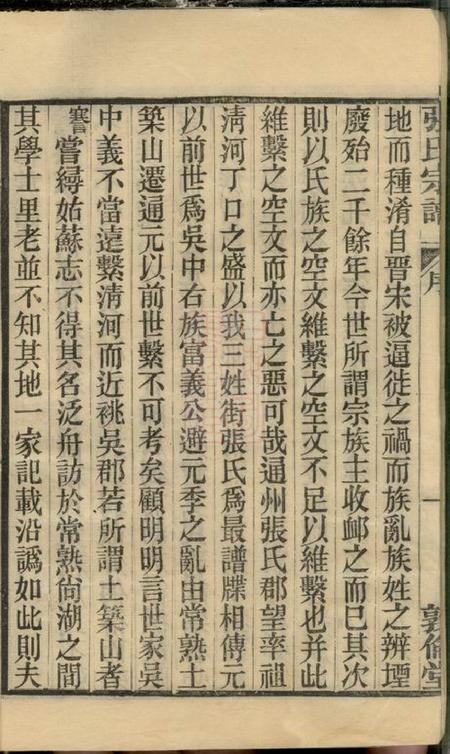 張氏宗譜 序 一 敦倫堂
地而種淆自晉宋被逼徙之禍而族亂族姓之辨堙
廢殆二千餘年今世所謂宗族主收卹之而已其次
則以氏族之空文維繫之空文不足以維繫也并此
維繫之空文而亦亡之惡可哉通州張氏郡望率祖
淸河丁口之盛以我三姓街張氏爲最譜牒相傳元
以前世爲吳中右族富義公避元季之亂由常熟土
築山遷通元以前世繫不可考矣顧明明言世家吳
中義不當遠繫淸河而近祧吳郡若所謂土築山者
謇嘗繙姑蘇志不得其名泛舟訪於常熟尙湖之間
其學士里老並不知其地一家記載沿譌如此則夫